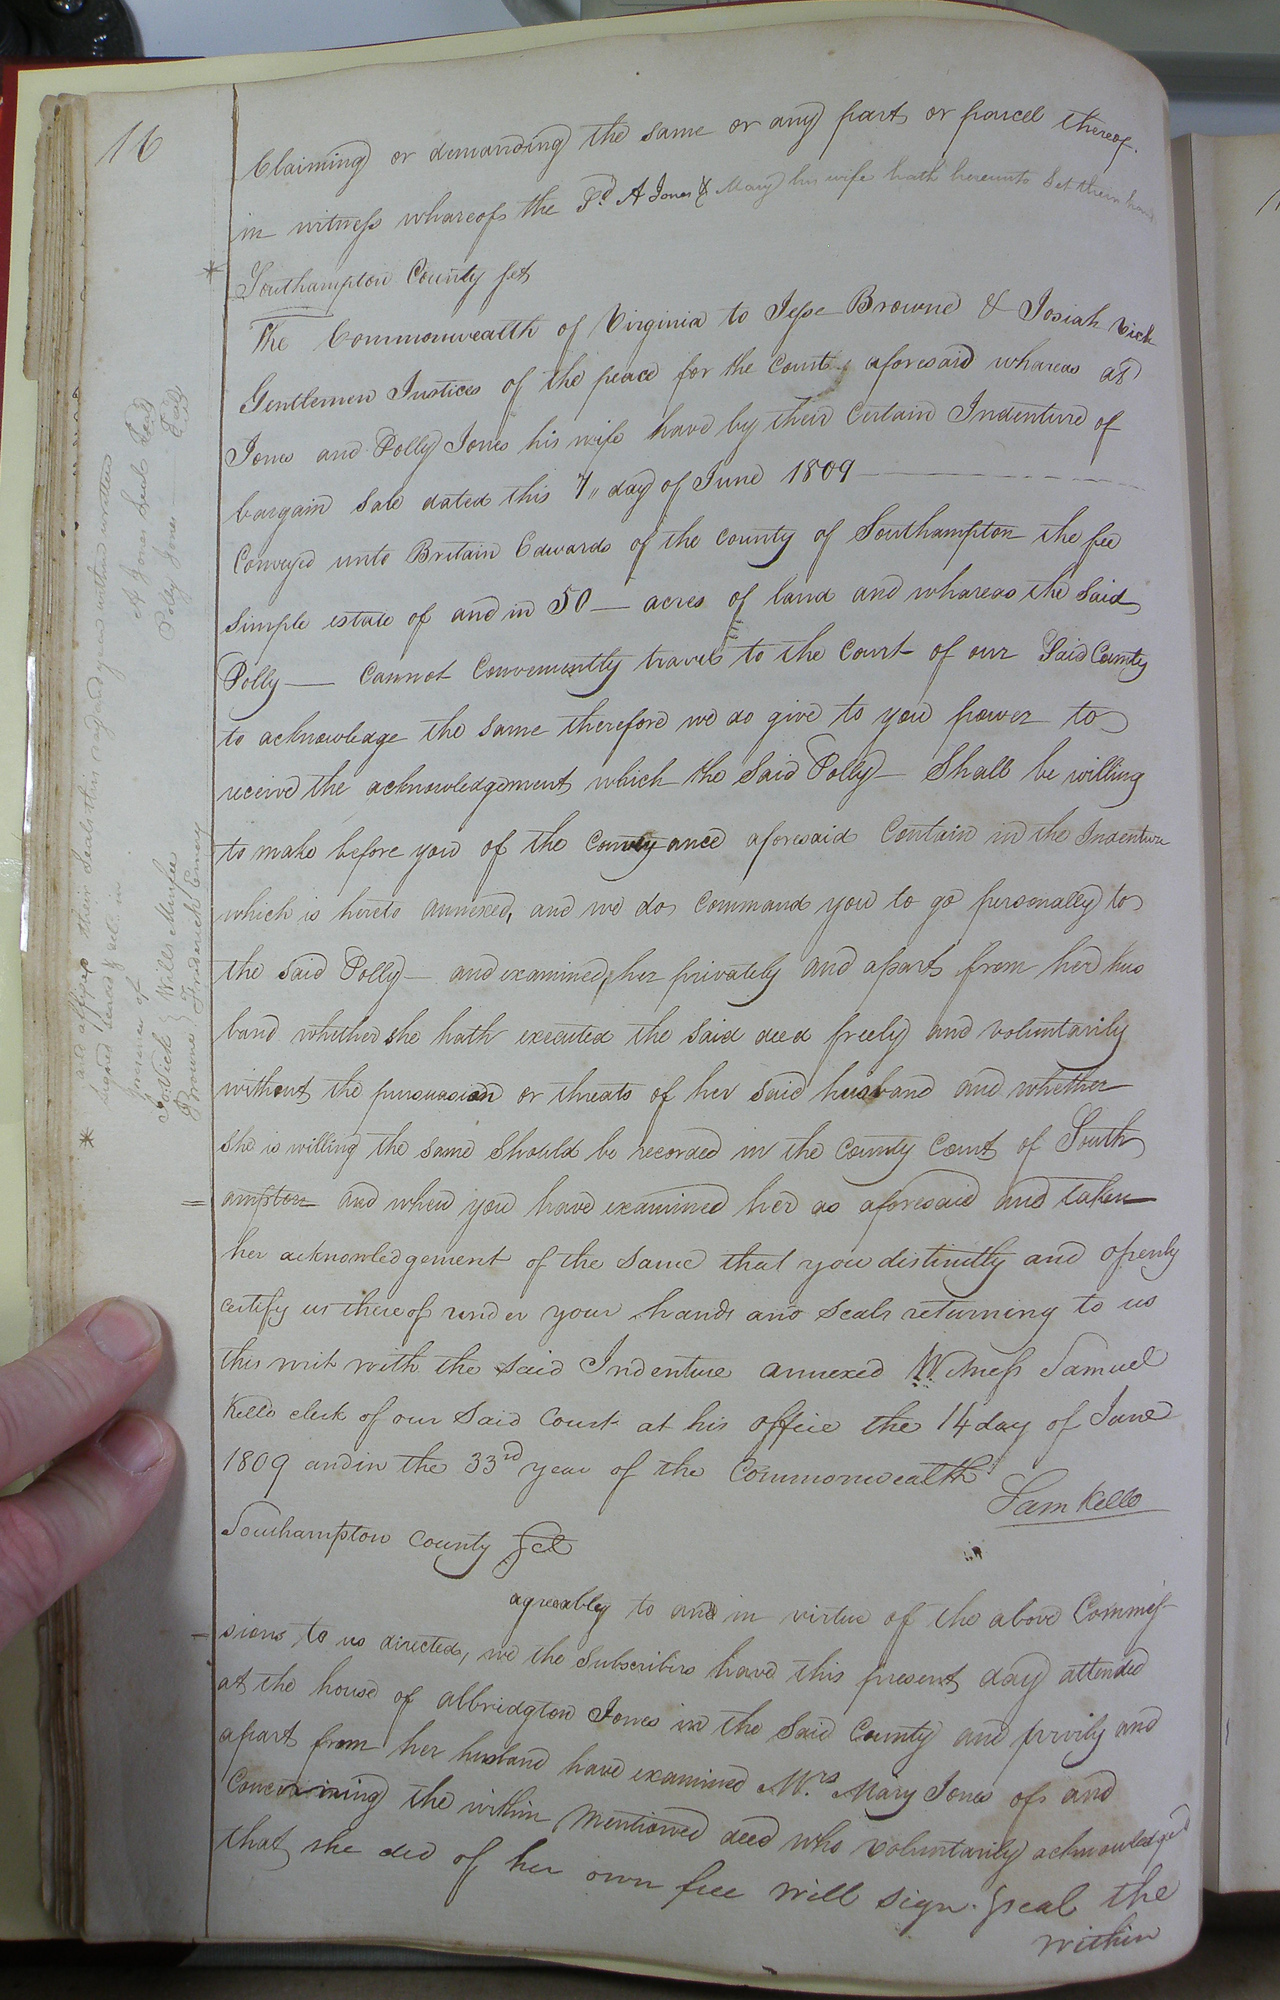 16
Claiming or demanding the same or any part or parcel thereof.
in witness whareof the Sd A Jones & Mary his wife hath hereunto Set their hands
* Southampton County sct
The Commonwealth of Virginia to Jesse Browne & Josiah Vick
Gentlemen Justices of the peace for the County aforesaid whareas A
Jones and Polly Jones his wife have by their Certain Indenture of
bargain Sale dated this 7" day of June 1809
Conveyed unto Britain Edwards of the county of Southampton the fee
Simple estate of and in 50 — acres of land and whareas the Said
Polly — Cannot Conveniently travel to the Court of our Said County
to acknowledge the same therefore we do give to you power to
receive the acknowledgement which the Said Polly — Shall be willing
to make before you of the Conveyance aforesaid Contain in the Indenture
which is hereto annexed, and we do Command you to go personally to
the Said Polly — and examined her privately and apart from her hus
band whether she hath executed the said deed freely and voluntarily
without the persuasion or threats of her said husband and whether
She is willing the same Should be recorded in the County Court of South
= ampton and when you have examined her as aforesaid and taken
her acknowledgement of the same that you distinctly and openly
certify us thereof under your hands and Seals returning to us
this writ with the said Indenture annexed Witness Samuel
Kello clerk of our Said Court at his office the 14 day of June
1809 and in the 33rd year of the Commonwealth
Sam Kello
Southampton County sct
agreeably to and in virtue of the above Commis-
- sions to us directed, we the Subscribers have this present day attended
at the house of Albridgton Jones in the Said County and privily and
apart from her husband have examined Mrs Mary Jones of and
Concerning the within Mentioned deed who voluntarily acknowledged
that she did of her own free will sign Seal the
within
* and affixed their Seals this day and year within written
signed Seald & deli. in
presence of
Jo. Vick } Wills
Browne } Frederick
A Jones Seal Seal
Polly Jones — Seal